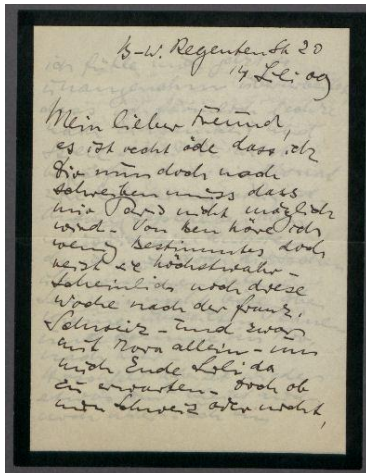 B-W. Regenten Str 20
14 Juli 09
Mein lieber Freund,
es ist recht öde dass ich
Dir nun doch noch
schreiben muss dass
mir nicht möglich
wird. Von höre ich
wenig Bestimmtes doch
reist sie höchstwahr-
scheinlich noch diese
Woche nach der franz.
Schweiz - und zwar
mit allein - um
mich Ende Juli da
zu erwarten. Doch ob
nun Schweiz oder nicht,